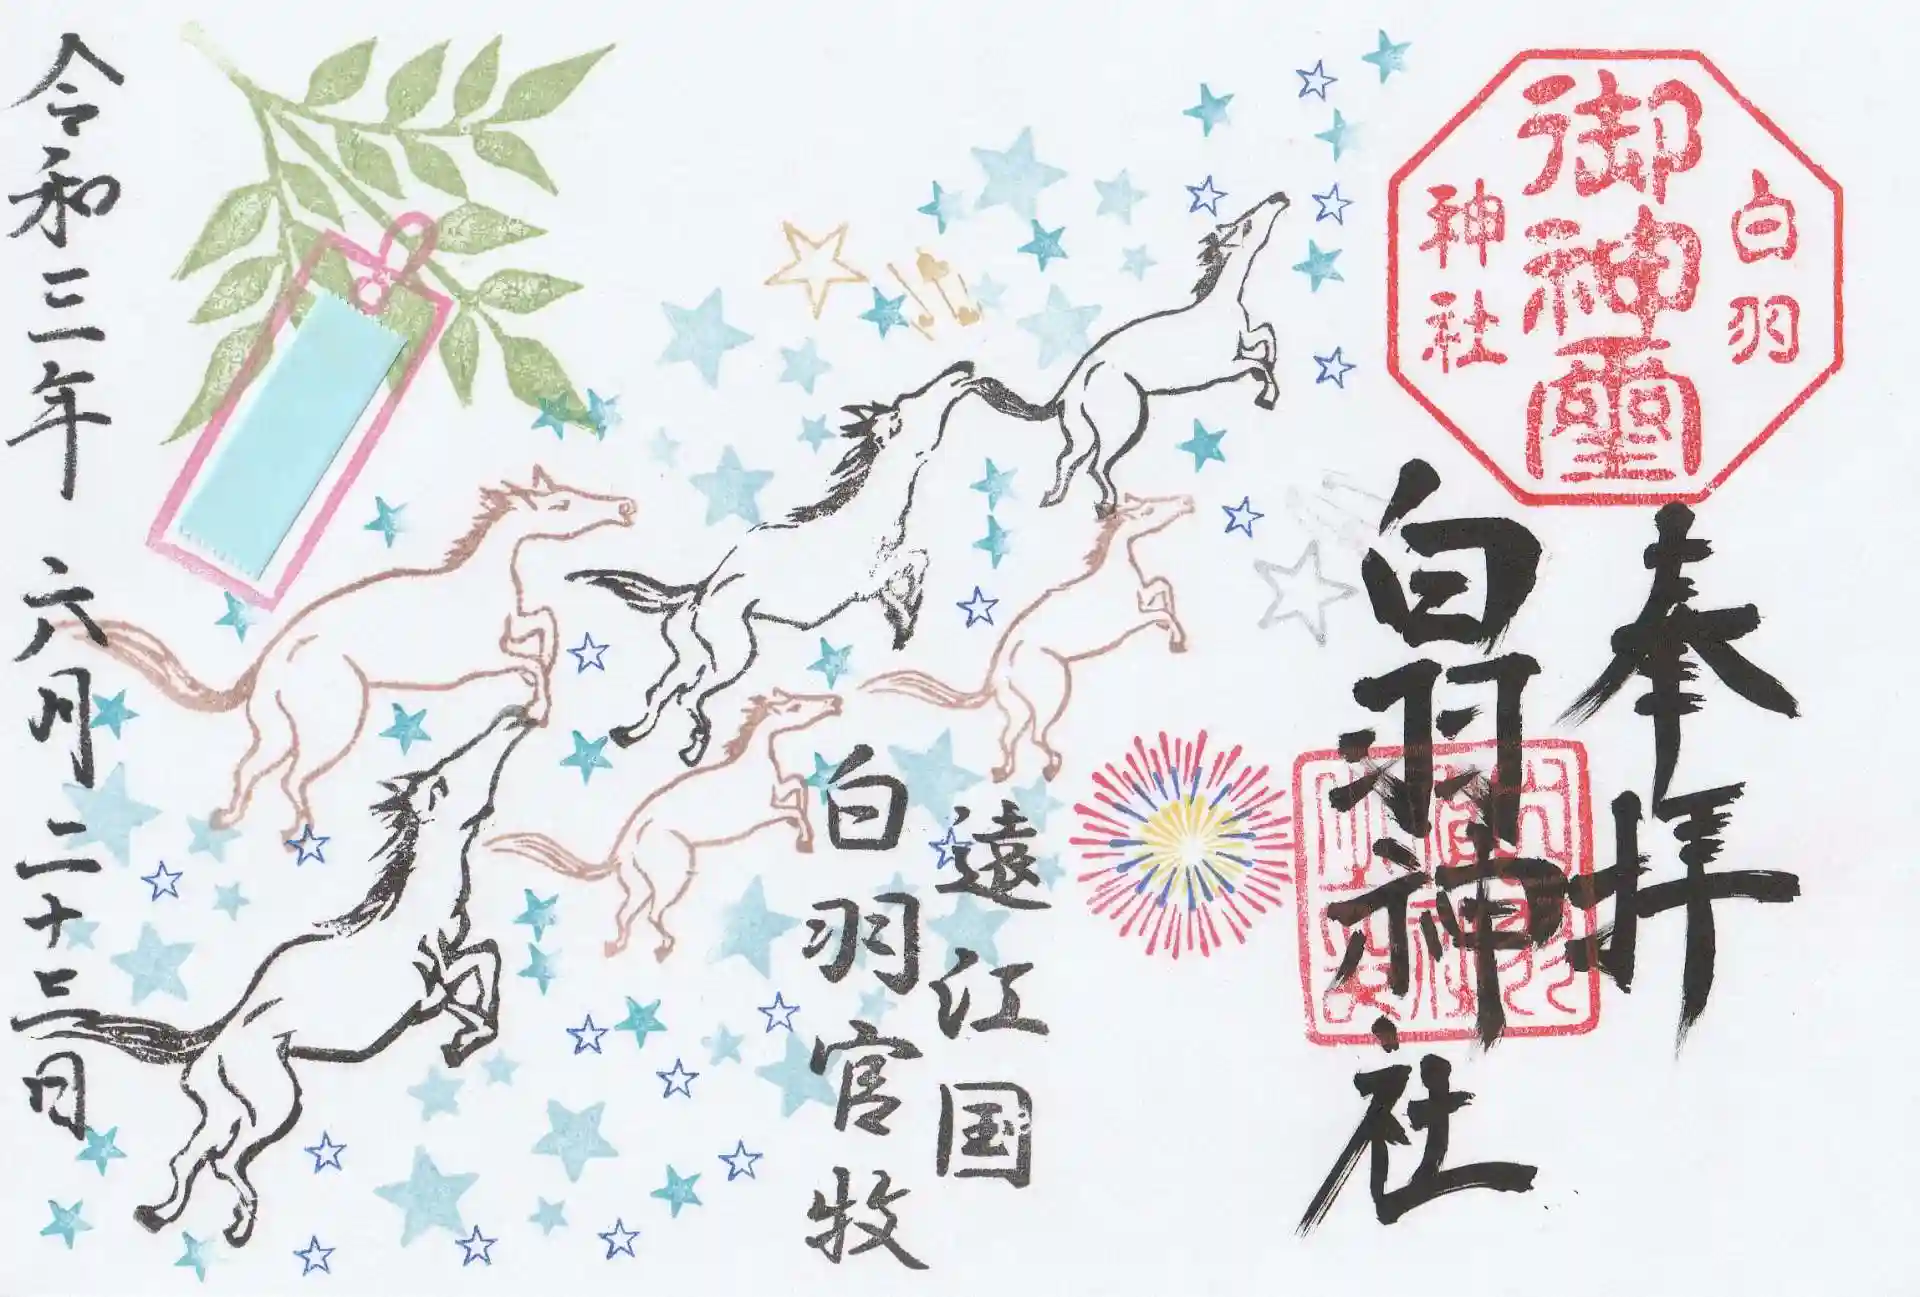 白羽
御神霊
神社
奉拝
白羽神社
遠江国
白羽官牧
令和三年 六月二十三日